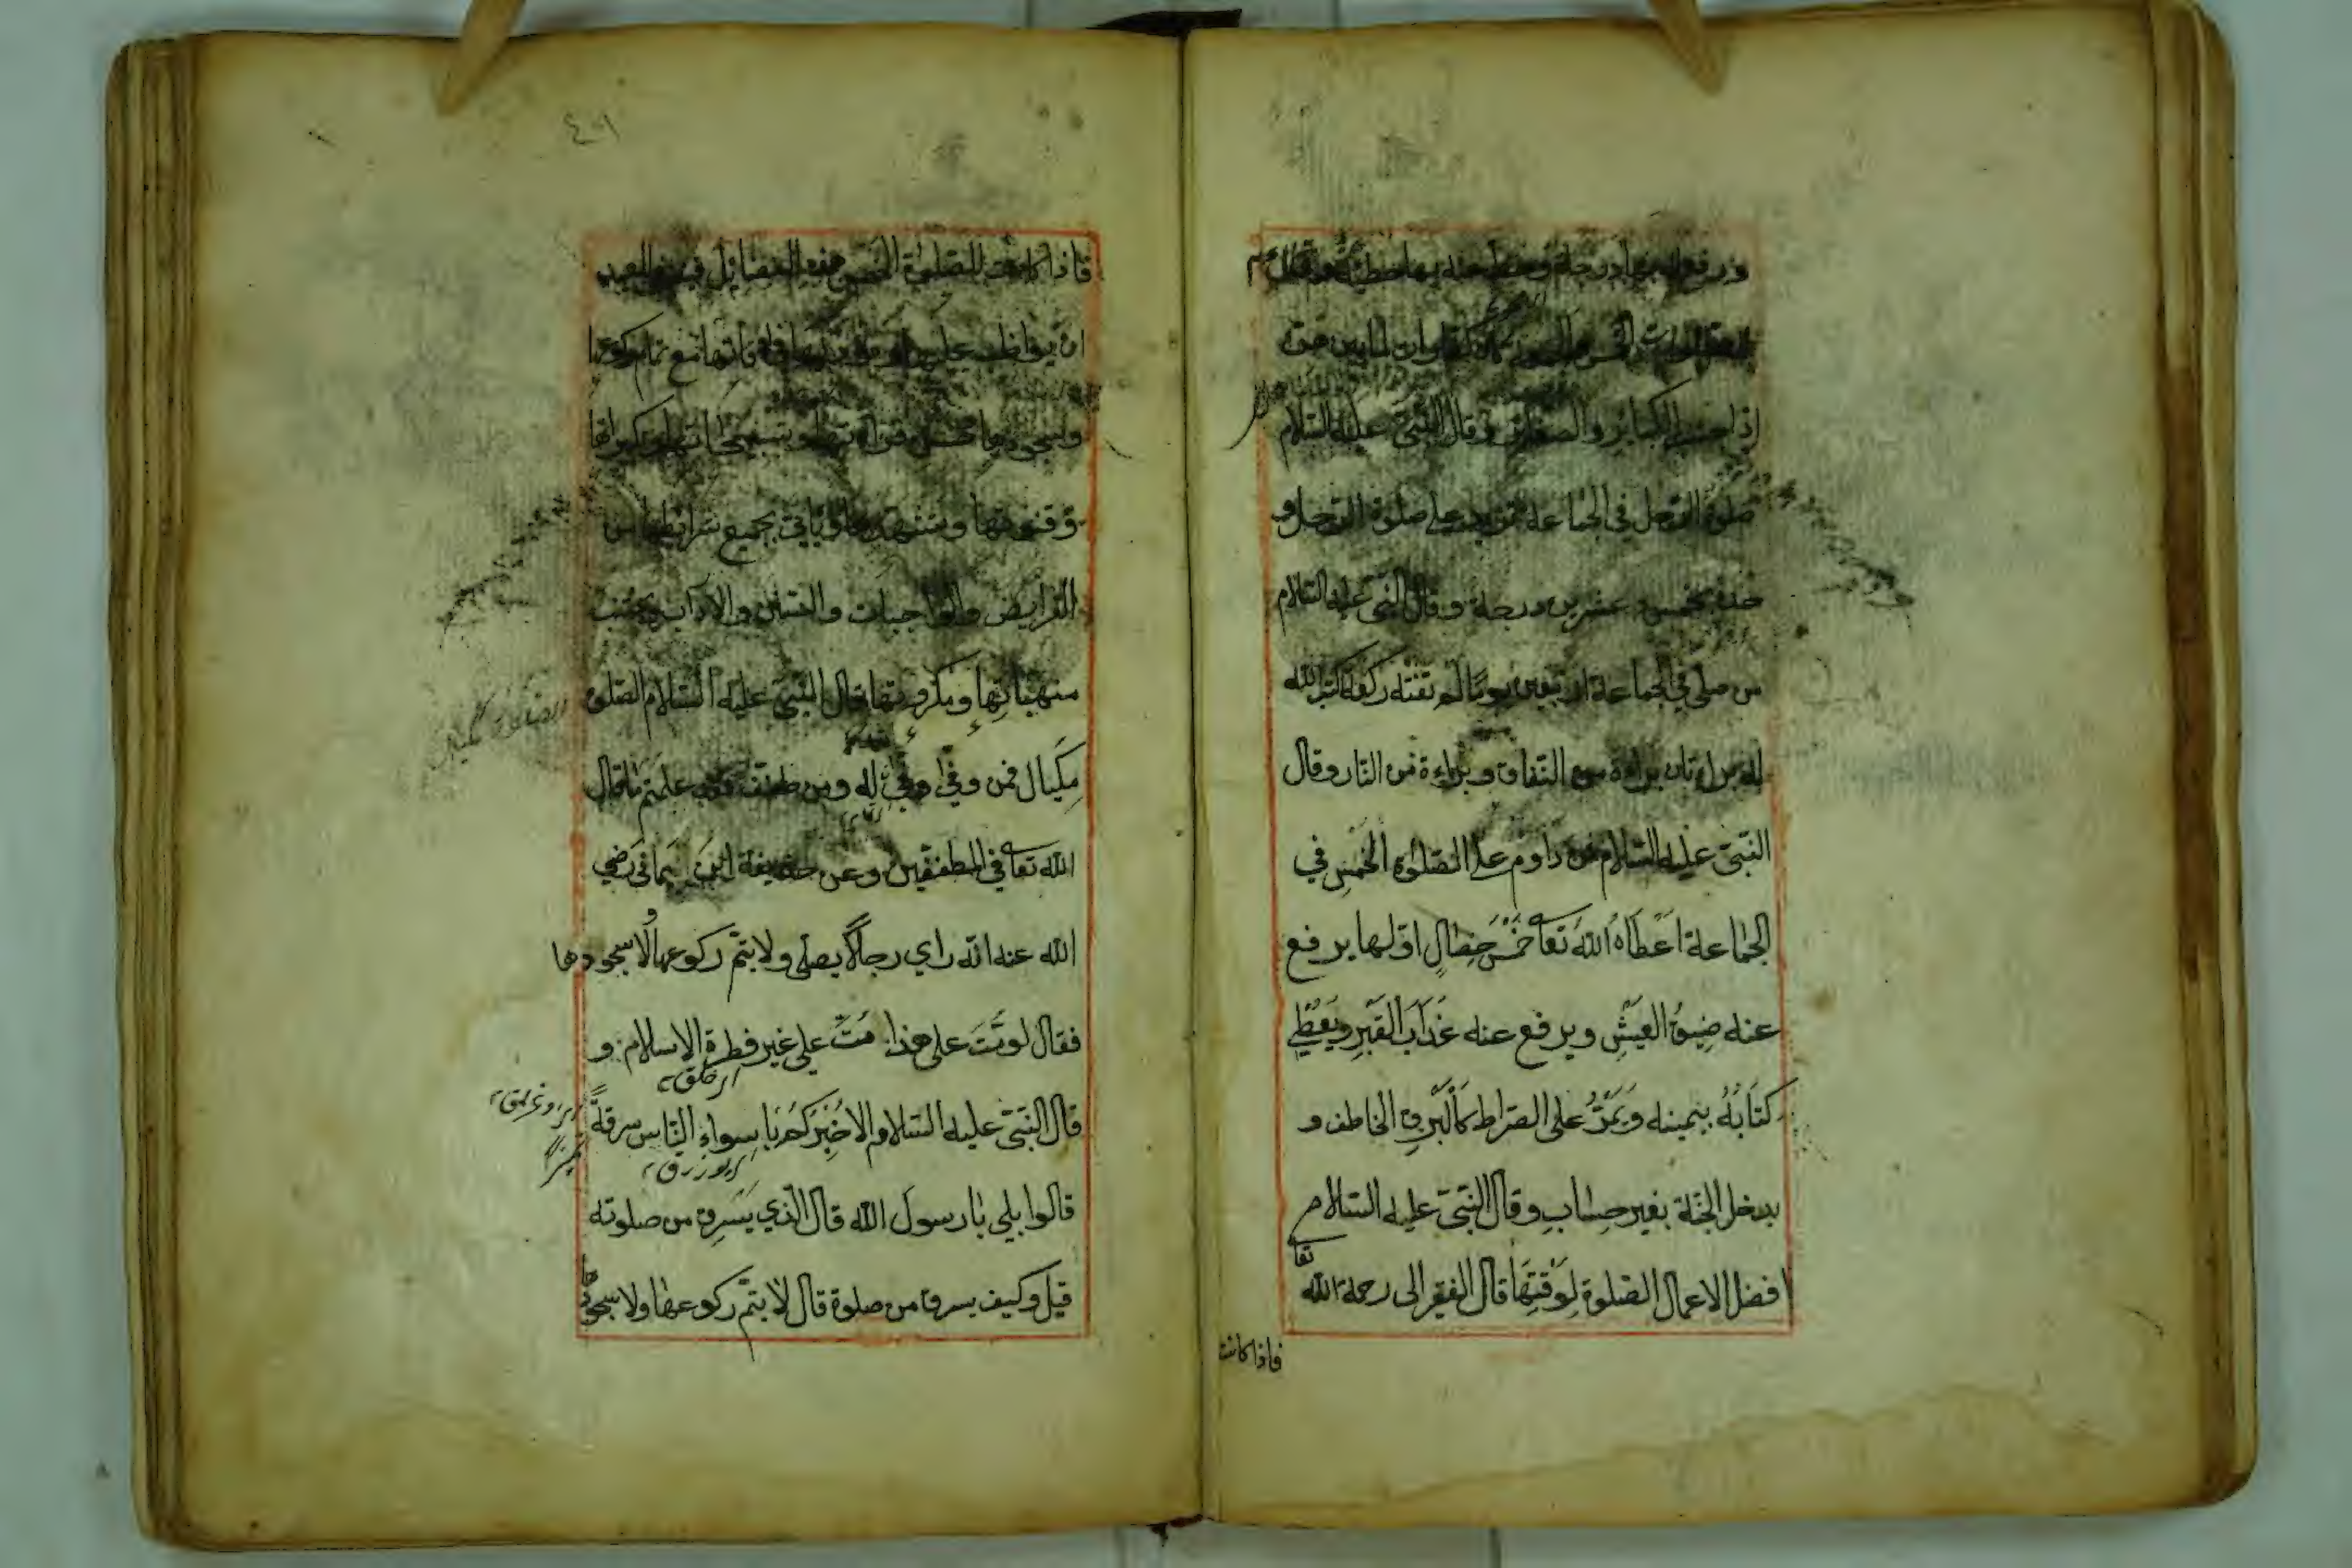 ورفع له بها درجة وحط عنه بها خطيئة وقال عم
الصلوات الخمس كفارات لما بينهن
إذا اجتنب الكبائر وقال النبي عليه السلام
صلوة الرجل في الجماعة تزيد على صلوة الرجل و
حده بخمس و عشرين درجة وقال النبي عليه السلام
من صلى في الجماعة اربعين يوما لم تفته ركعة كتب الله
له براءتان براءة من النفاق و براءة من النار وقال
النبي عليه السلام من داوم على الصلوة الخمس في
الجماعة اعطاه الله تعا خمس خصال اولها يرفع
عنه ضيق العيش ويرفع عنه عذاب القبر ويعطي
كتابه بيمينه ويمر على الصراط كالبرق الخاطف و
يدخل الجنة بغير حساب وقال النبي عليه السلام
افضل الاعمال الصلوة لوقتها قال الفقير الى رحمة الله تعا
فاذا كانت
٤٠١
فاذا كانت للصلوة الخمس هذه الفضائل فينبغي للعبد
ان يواظب عليها مع تمام ركوعها
وسجودها
وقنوتها وتشهدها ويأتي بجميع شرائطها من
الفرايض والواجبات والسنن والآداب ويجتنب
منهياتها ومكروهتها قال النبي عليه السلام الصلوة
مكيال فمن وفى وفي له ومن طفف فقد علمتم ما قال
الله تعا في المطففين وعن حذيفة ابن يماني رضي
الله عنه انه راي رجلا يصلى ولا يتم ركوعها ولا سجودها
فقال لو مت على هذا مت على غير فطرة الاسلام و
قال النبي عليه السلام الا اخبركم باسواء الناس سرقة
قالوا بلي يا رسول الله قال الذي يسرق من صلوته
قيل وكيف يسرق من صلوة قال لا يتم ركوعها ولا سجودها